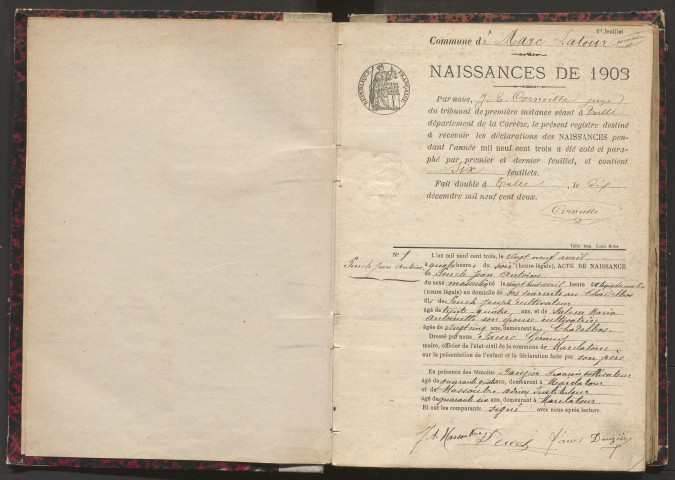 1er feuillet
Commune de Marc Latour
NAISSANCES DE 1903
RÉPUBLIQUE FRANÇAISE
Par nous, J. E. Corneille juge
du tribunal de première instance séant à Tulle
département de la Corrèze, le présent registre destiné
à recevoir les déclarations des NAISSANCES pen-
dant l'année mil neuf cent trois a été coté et para-
phé par premier et dernier feuillet, et contient
Six feuillets.
Fait double à Tulle, le Dix
décembre mil neuf cent deux.
Corneille
Tulle, Imp. Louis Moles
N° 1
Peuch Jean Antoine
L'an mil neuf cent trois, le vingt neuf avril
à quatre heures du soir (heure légale), ACTE DE NAISSANCE
de Peuch Jean Antoine
du sexe masculin né le vingt huit avril heure
(heure légale) au domicile de ses parents au Chadelbos
fils de Peuch Joseph cultivateur
âgé de trente quatre ans, et de Maria
Antoinette son épouse cultivatrice
âgée de vingt cinq ans, demeurant au Chadelbos
Dressé par nous Faure Géraud
maire, officier de l'état-civil de la commune de Marclatour
sur la présentation de l'enfant et la déclaration faite par son père
En présence des témoins Dauzier François cultivateur
âgé de quarante ans, demeurant à Marclatour
et de Massoubre instituteur
âgé de quarante six ans, demeurant à Marclatour
Et ont les comparants signé avec nous après lecture.
Massoubre Peuch Faure Dauzier